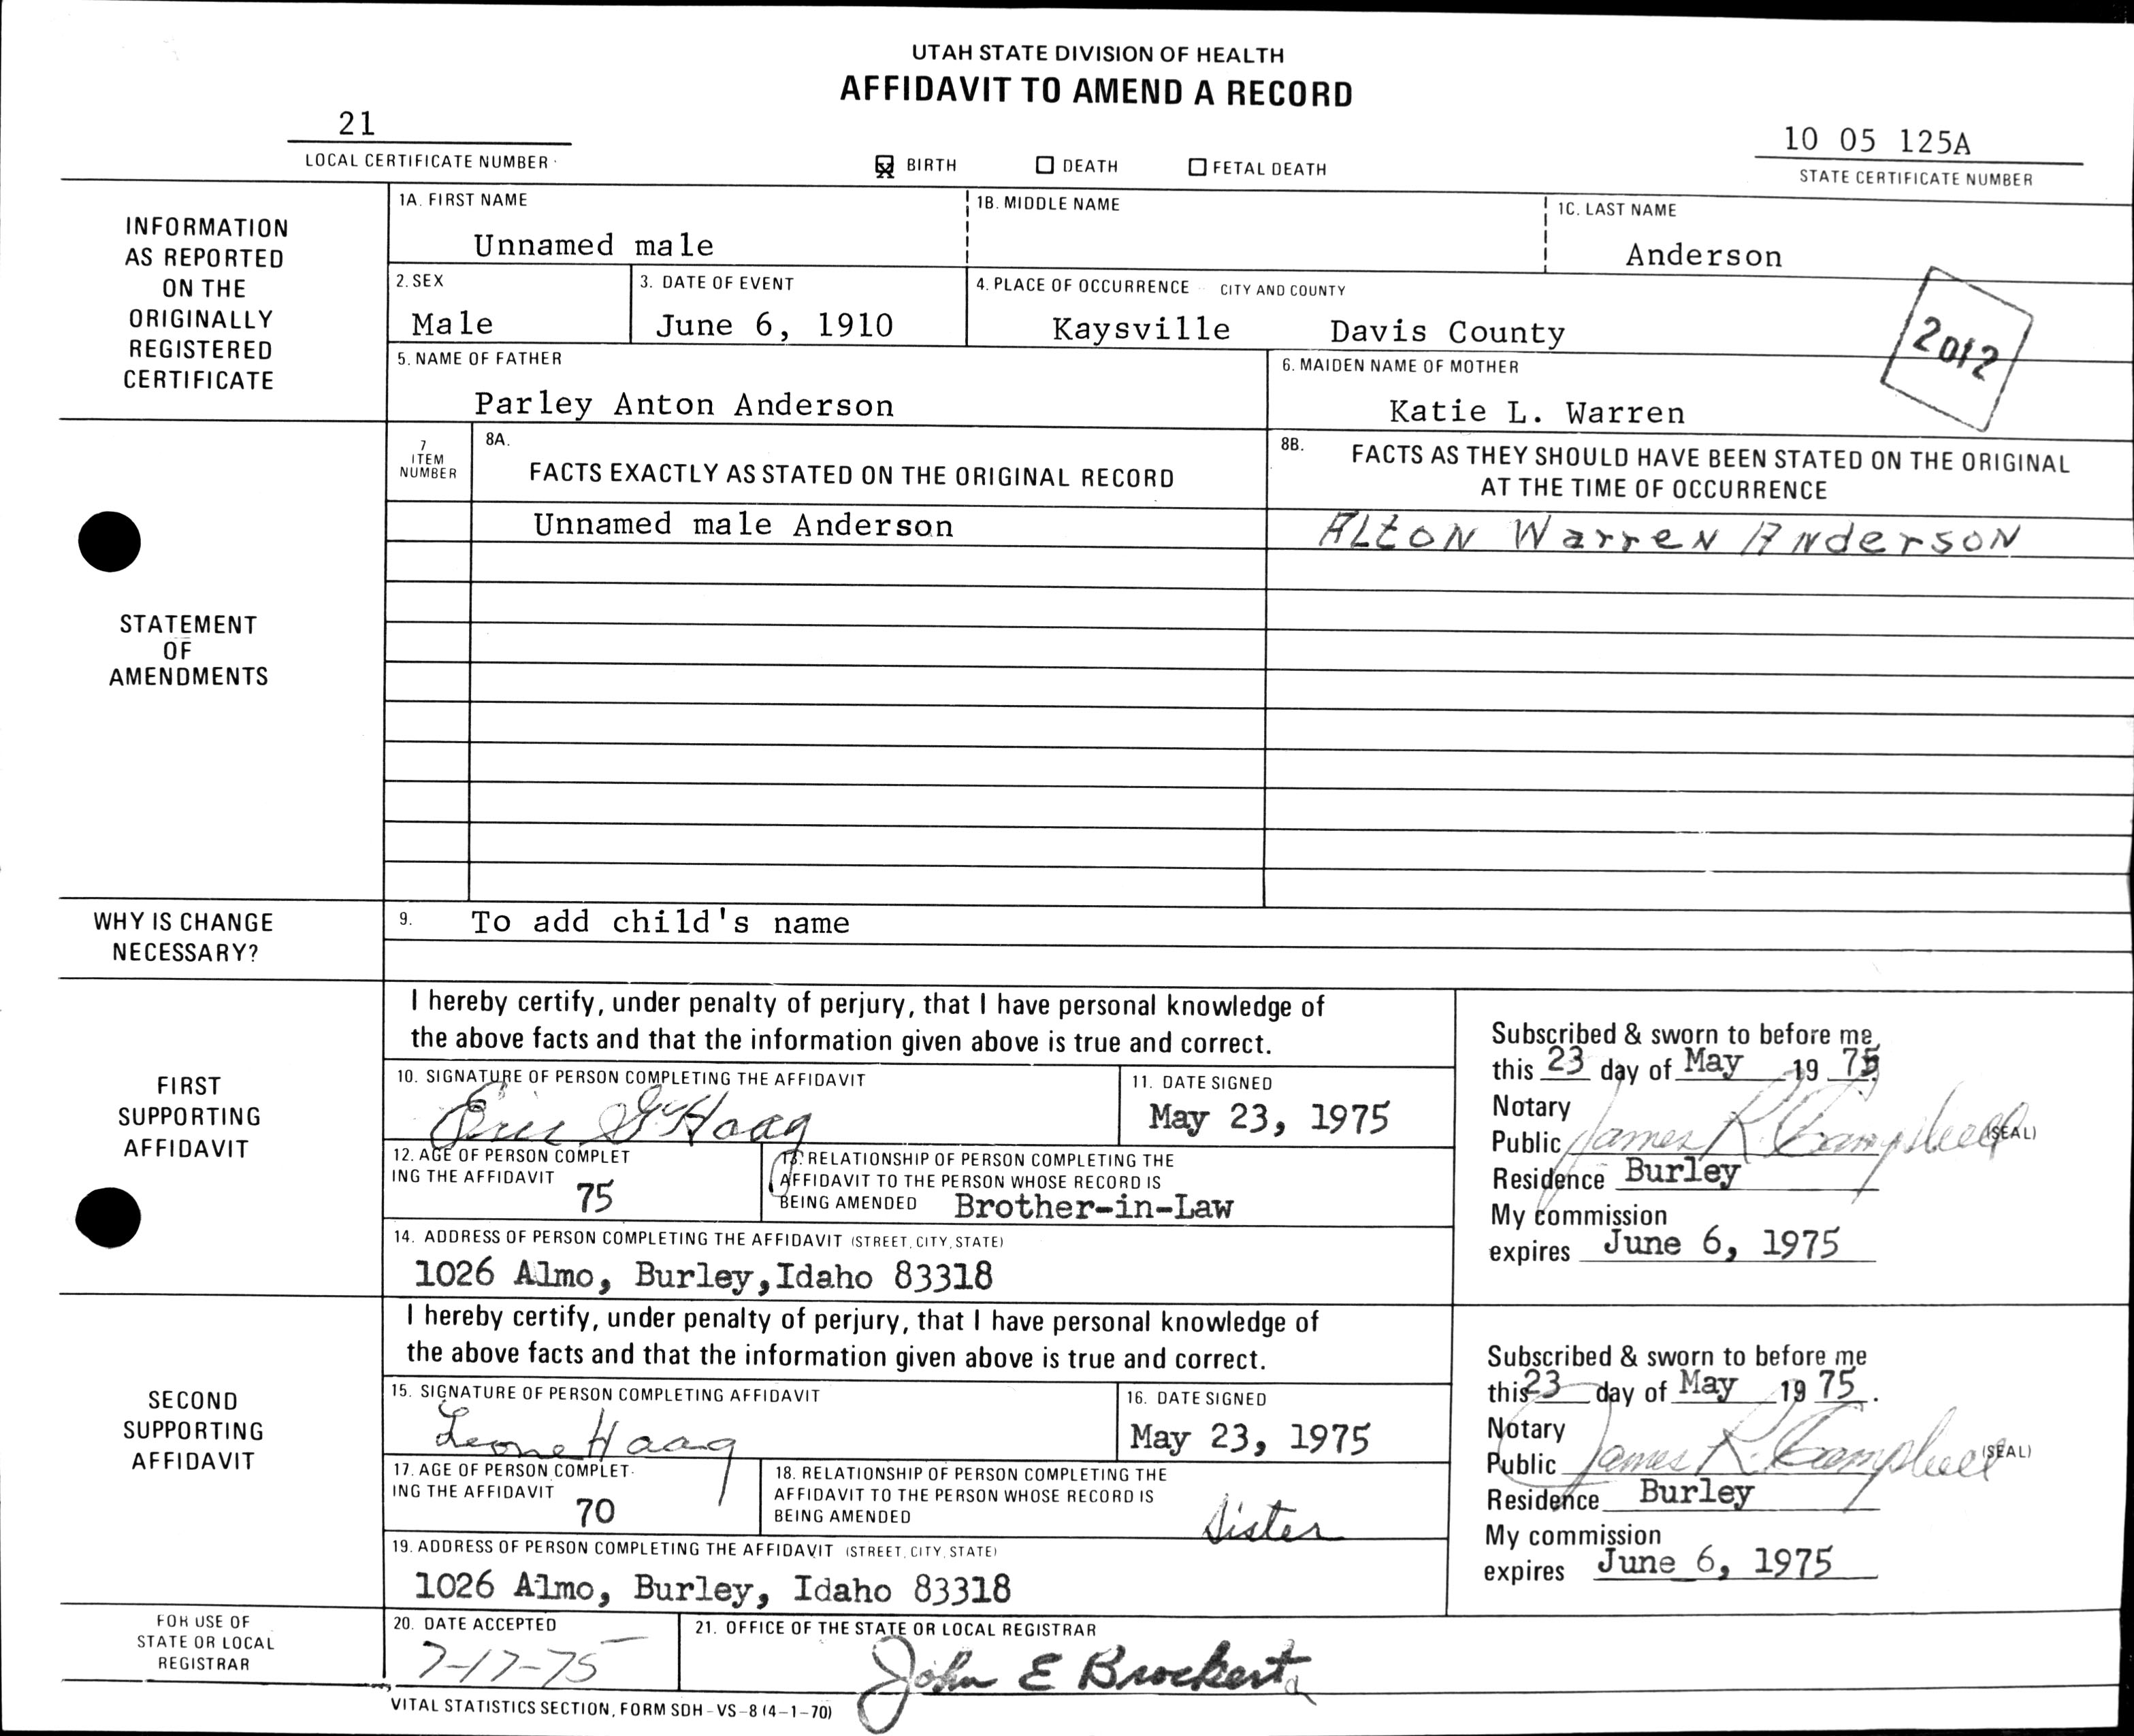 UTAH STATE DIVISION OF HEALTH
AFFIDAVIT TO AMEND A RECORD
21
LOCAL CERTIFICATE NUMBER
BIRTH DEATH FETAL DEATH
10 05 125A
STATE CERTIFICATE NUMBER
INFORMATION
AS REPORTED
ON THE
ORIGINALLY
REGISTERED
CERTIFICATE
1A. FIRST NAME
Unnamed male
1B. MIDDLE NAME
1C. LAST NAME
Anderson
2. SEX
Male
3. DATE OF EVENT
June 6, 1910
4. PLACE OF OCCURRENCE CITY AND COUNTY
Kaysville Davis County
2012
5. NAME OF FATHER
Parley Anton Anderson
6. MAIDEN NAME OF MOTHER
Katie L. Warren
STATEMENT
OF
AMENDMENTS
7
ITEM
NUMBER
8A.
FACTS EXACTLY AS STATED ON THE ORIGINAL RECORD
8B. FACTS AS THEY SHOULD HAVE BEEN STATED ON THE ORIGINAL
AT THE TIME OF OCCURRENCE
Unnamed male Anderson
Alton Warren Anderson
WHY IS CHANGE
NECESSARY?
9. To add child's name
FIRST
SUPPORTING
AFFIDAVIT
I hereby certify, under penalty of perjury, that I have personal knowledge of
the above facts and that the information given above is true and correct.
10. SIGNATURE OF PERSON COMPLETING THE AFFIDAVIT
Eric G Haag
11. DATE SIGNED
May 23, 1975
12. AGE OF PERSON COMPLET
ING THE AFFIDAVIT
75
13. RELATIONSHIP OF PERSON COMPLETING THE
AFFIDAVIT TO THE PERSON WHOSE RECORD IS
BEING AMENDED Brother-in-Law
14. ADDRESS OF PERSON COMPLETING THE AFFIDAVIT (STREET, CITY, STATE)
1026 Almo, Burley, Idaho 83318
Subscribed & sworn to before me,
this 23 day of May 19 75
Notary
Public James R. Campbell (SEAL)
Residence Burley
My commission
expires June 6, 1975
SECOND
SUPPORTING
AFFIDAVIT
I hereby certify, under penalty of perjury, that I have personal knowledge of
the above facts and that the information given above is true and correct.
15. SIGNATURE OF PERSON COMPLETING AFFIDAVIT
Leone Haag
16. DATE SIGNED
May 23, 1975
17. AGE OF PERSON COMPLET-
ING THE AFFIDAVIT
70
18. RELATIONSHIP OF PERSON COMPLETING THE
AFFIDAVIT TO THE PERSON WHOSE RECORD IS
BEING AMENDED Sister
19. ADDRESS OF PERSON COMPLETING THE AFFIDAVIT (STREET, CITY, STATE)
1026 Almo, Burley, Idaho 83318
Subscribed & sworn to before me
this 23 day of May 19 75.
Notary
Public James R. Campbell (SEAL)
Residence Burley
My commission
expires June 6, 1975
FOR USE OF
STATE OR LOCAL
REGISTRAR
20. DATE ACCEPTED
7-17-75
21. OFFICE OF THE STATE OR LOCAL REGISTRAR
John E Brockert
VITAL STATISTICS SECTION, FORM SDH-VS-8 (4-1-70)